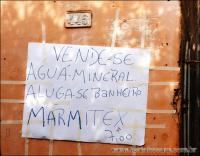 VENDE-SE
AGUA-MINERAL
ALUGA-SE BANHEIRO
MARMITEX
$
7,00